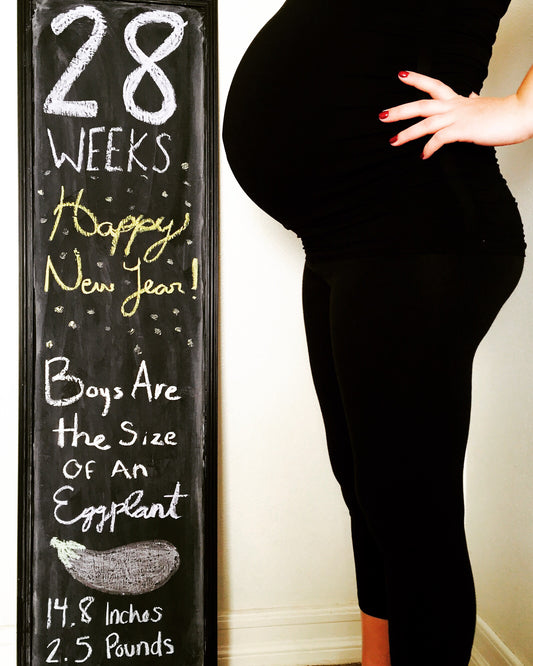 28
WEEKS
Happy
New Year!
Boys Are
the Size
Of An
Eggplant
14.8 Inches
2.5 Pounds